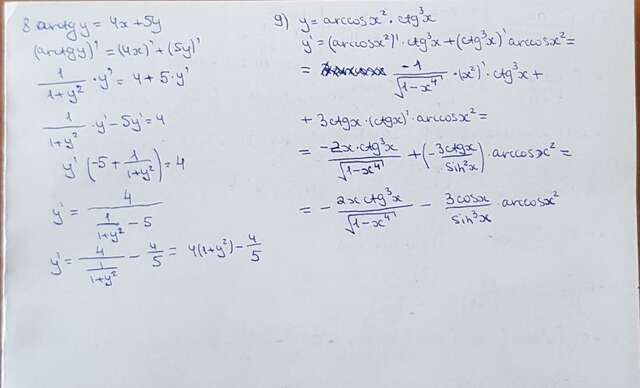 8 arctgy = 4x + 5y
(arctgy)' = (4x)' + (5y)'
1/(1+y²) · y' = 4 + 5·y'
1/(1+y²) · y' - 5y' = 4
y' (-5 + 1/(1+y²)) = 4
y' = 4/(1/(1+y²) - 5)
y' = 4/(1/(1+y²)) - 4/5 = 4(1+y²) - 4/5
9) y = arccosx² · ctg³x
y' = (arccosx²)' · ctg³x + (ctg³x)' arccosx² =
= -1/√(1-x⁴) · (x²)' · ctg³x +
+ 3ctgx · (ctgx)' · arccosx² =
= -2x·ctg³x/√(1-x⁴) + (-3ctgx/sin²x) · arccosx² =
= - 2x ctg³x/√(1-x⁴) - 3cosx/sin³x · arccosx²